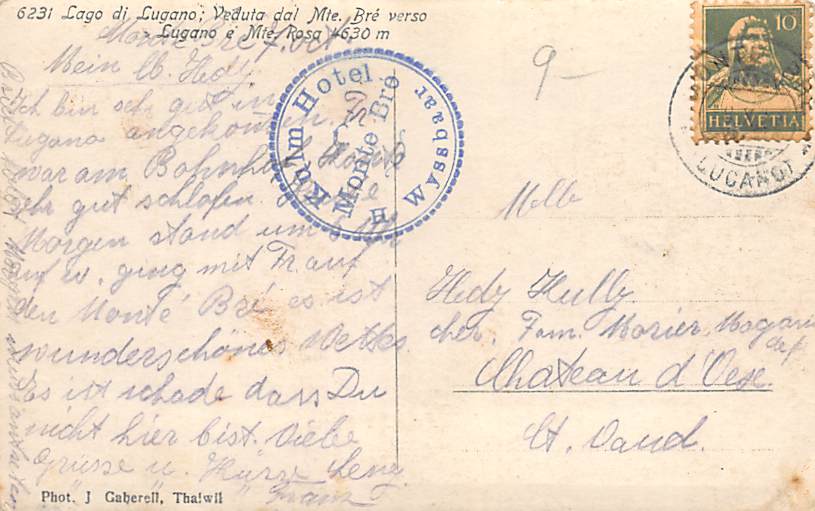 6231 Lago di Lugano; Veduta dal Mte. Bré verso
Lugano e Mte. Rosa 4630 m
Monte Bré 7. Oct.
Mein lb. Hedy.
Ich bin sehr gut in
Lugano angekommen. Fr.
war am Bahnhof. Konte
sehr gut schlafen.
Morgen stand um 6 Uhr
auf u. ging mit Fr auf
den Monté Bré es ist
wunderschönes Wetter
Es ist schade dass Du
nicht hier bist. Viele
Grüsse u. Küsse
Franz
Kulm Hotel
Monte Bré
H. Wyssbaar
9-
10
HELVETIA
LUGANO 1
Mlle
Hedy Hully
cher. Fam. Morier, Magasin
Chateau d'Oex.
Ct. Vaud.
Phot. J Gaberell, Thalwil